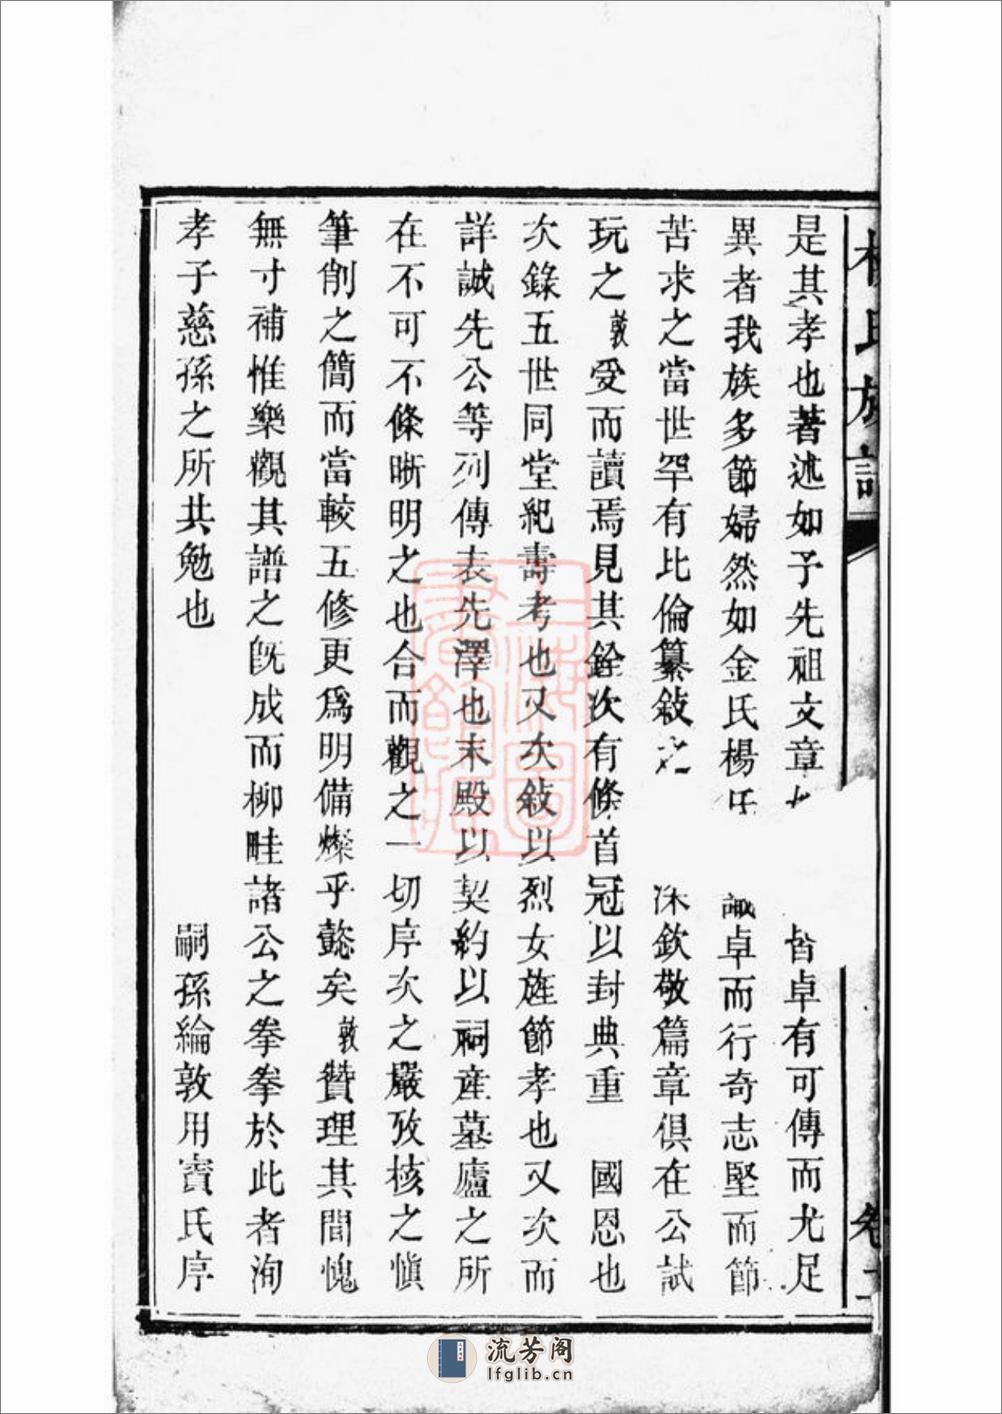 是其孝也著述如予先祖文章 皆卓有可傳而尤足
異者我族多節婦然如金氏楊氏 諏卓而行奇志堅而節
苦求之當世罕有比倫纂敍之 深欽敬篇章俱在公試
玩之敦受而讀焉見其銓次有條首冠以封典重 國恩也
次錄五世同堂紀壽考也又次敍以烈女旌節孝也又次而
詳誠先公等列傳表先澤也末殿以契約以祠産墓廬之所
在不可不條晰明之也合而觀之一切序次之嚴攷核之愼
筆削之簡而當較五修更爲明備燦乎懿矣敦贊理其間愧
無寸補惟樂觀其譜之旣成而柳畦諸公之拳拳於此者洵
孝子慈孫之所共勉也
嗣孫綸敦用賓氏序
上海圖書館藏
流芳阁
lfglib.cn